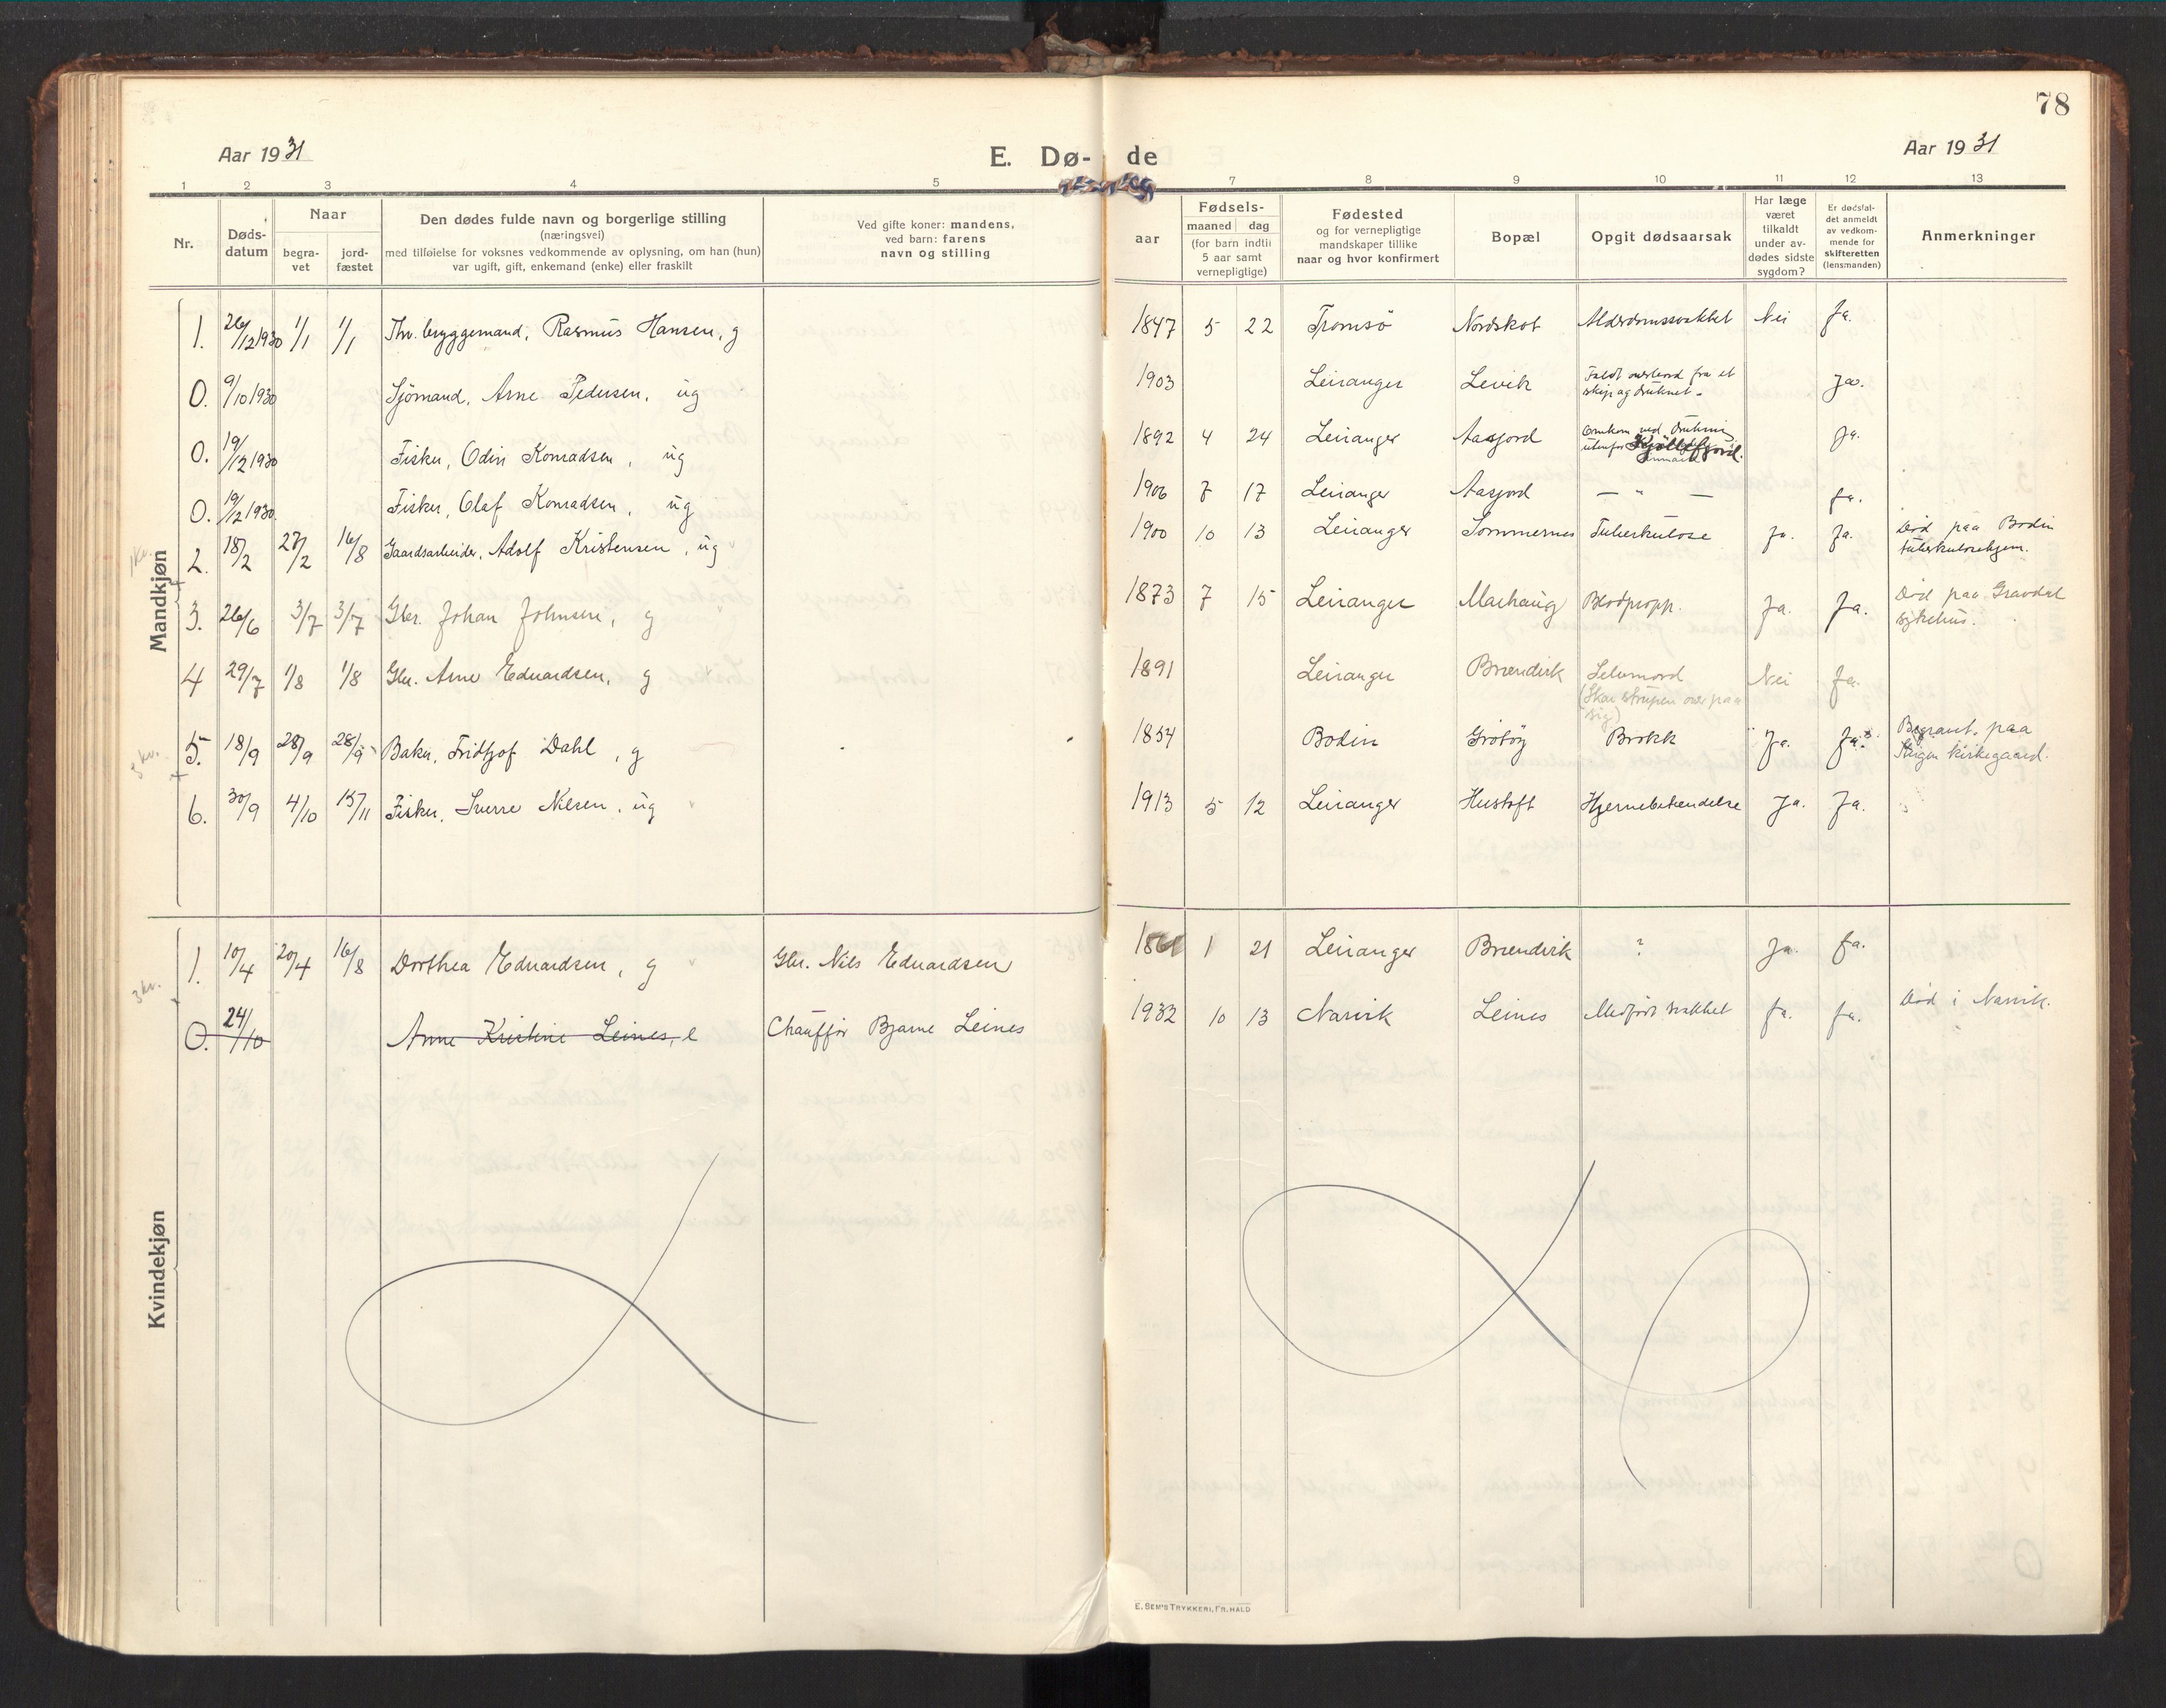 78
Aar 1931
E. Dø-
de
Aar 1931
1 2 3 4 5 7 8 9 10 11 12 13
Nr.
Døds-
datum
Naar
begra-
vet
jord-
fæstet
Den dødes fulde navn og borgerlige stilling
(næringsvei)
med tilføielse for voksnes vedkommende av oplysning, om han (hun)
var ugift, gift, enkemand (enke) eller fraskilt
Ved gifte koner: mandens,
ved barn: farens
navn og stilling
aar
Fødsels-
maaned dag
(for barn indtil
5 aar samt
vernepligtige)
Fødested
og for vernepligtige
mandskaper tillike
naar og hvor konfirmert
Bopæl
Opgit dødsaarsak
Har læge
været
tilkaldt
under av-
dødes sidste
sygdom?
Er dødsfal-
det anmeldt
av vedkom-
mende for
skifteretten
(lensmanden)
Anmerkninger
Mandkjøn
1. 26/12 1930 1/1 1/1 Fhv. bryggemand, Rasmus Hansen, g 1847 5 22 Tromsö Nordskot Alderdomssvakhet Nei Ja.
0. 9/10 1930 Sjömand, Arne Pedersen, ug 1903 Leiranger Levik Faldt overbord fra et
skip og druknet. Ja.
0. 19/12 1930 Fisker, Odin Konradsen, ug 1892 4 24 Leiranger Aasjord Omkom ved drukning
utenfor Kjöllefjord. Ja.
0. 19/12 1930. Fisker, Olaf Konradsen, ug 1906 7 17 Leiranger Aasjord — " — Ja.
2. 18/2 27/2 16/8 Gaardsarbeider, Adolf Kristensen, ug 1900 10 13 Leiranger Sommernes Tuberkulose Ja. Ja. Död paa Bodin
tuberkulosehjem.
3. 26/6 3/7 3/7 Gbr. Johan Johnsen, g 1873 7 15 Leiranger Maehaug Blodpropp. Ja. Ja. Död paa Gravdal
sykehus.
4 29/7 1/8 1/8 Gbr. Arne Eduardsen, g 1891 Leiranger Brændvik Selvmord Nei Ja.
(Skar strupen over paa
sig)
5. 18/9 28/9 28/9 Baker, Fridtjof Dahl, g 1854 Bodin Grötöy Brokk Ja. Ja. Begravt. paa
Steigen kirkegaard.
6. 30/9 4/10 15/11 Fisker, Sverre Nilsen, ug 1913 5 12 Leiranger Hustoft Hjernebetændelse Ja. Ja.
Kvindekjøn
1. 10/4 20/4 16/8 Dorthea Eduardsen, g Gbr. Nils Eduardsen 1861 1 21 Leiranger Brændvik ? Ja. Ja.
0. 24/10 Anne Kristine Leines, e Chaufför Bjarne Leines 1932 10 13 Narvik Leines Medfödt svakhet Ja. Ja. Död i Narvik.
3 kv.
E. SEM'S TRYKKERI, FR.HALD